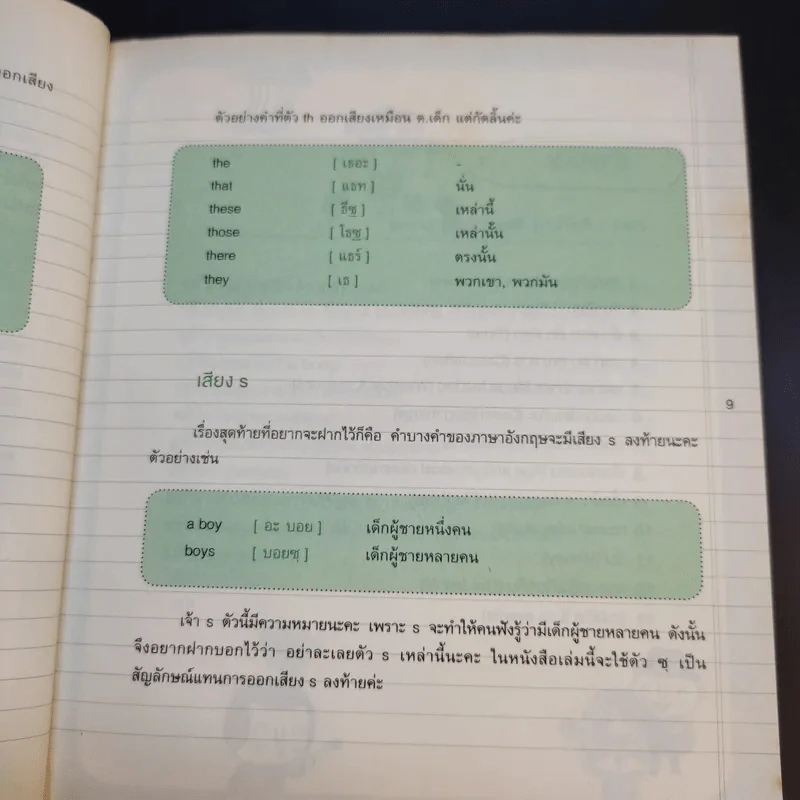 อกเสียง
ตัวอย่างคำที่ตัว th ออกเสียงเหมือน ด.เด็ก แต่กัดลิ้นค่ะ
the [ เธอะ ] -
that [ แธท ] นั่น
these [ ธีซฺ ] เหล่านี้
those [ โธซฺ ] เหล่านั้น
there [ แธร์ ] ตรงนั้น
they [ เธ ] พวกเขา, พวกมัน
เสียง s
9
เรื่องสุดท้ายที่อยากจะฝากไว้ก็คือ คำบางคำของภาษาอังกฤษจะมีเสียง s ลงท้ายนะคะ
ตัวอย่างเช่น
a boy [ อะ บอย ] เด็กผู้ชายหนึ่งคน
boys [ บอยซฺ ] เด็กผู้ชายหลายคน
เจ้า s ตัวนี้มีความหมายนะคะ เพราะ s จะทำให้คนฟังรู้ว่ามีเด็กผู้ชายหลายคน ดังนั้น
จึงอยากฝากบอกไว้ว่า อย่าละเลยตัว s เหล่านี้นะคะ ในหนังสือเล่มนี้จะใช้ตัว ซฺ เป็น
สัญลักษณ์แทนการออกเสียง s ลงท้ายค่ะ